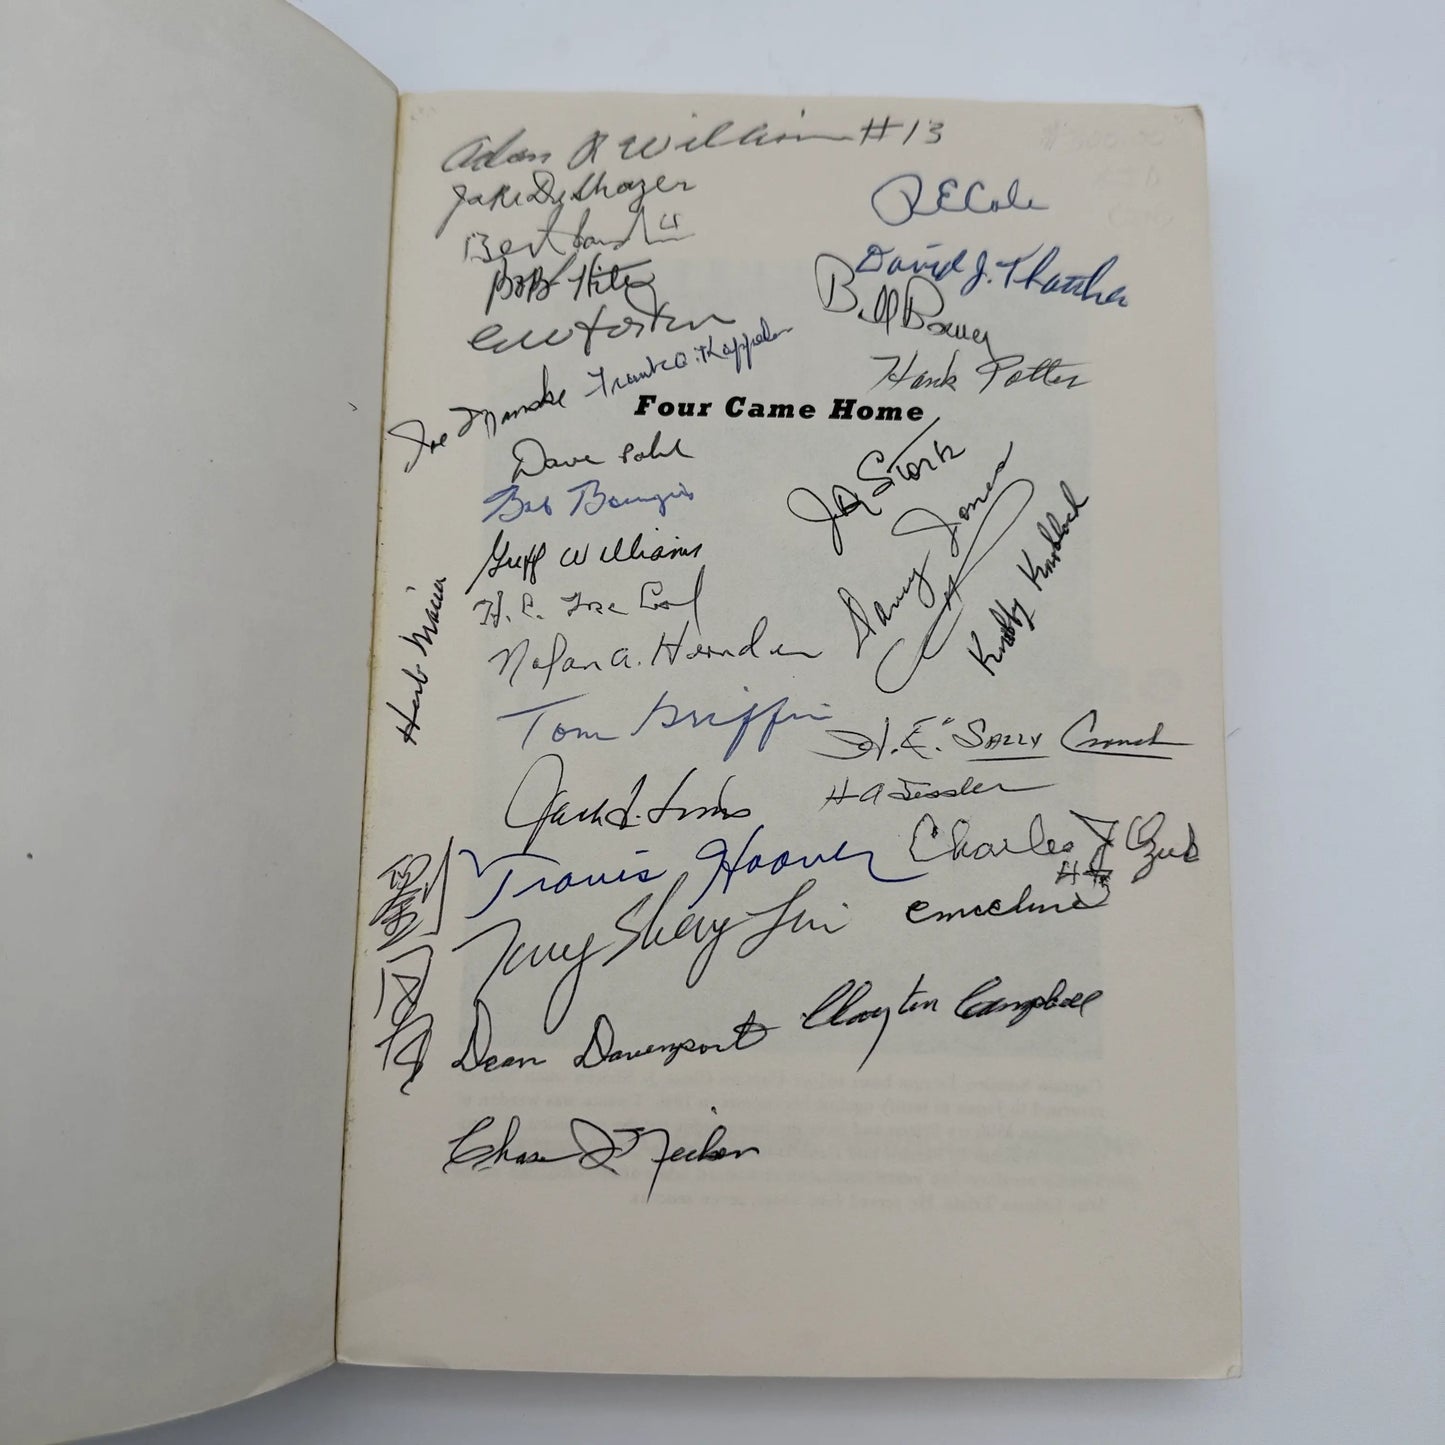 Adam R Williams #13
Jake DeShazer
R E Cole
Bert Jordan 4
David J. Thatcher
Bob Hite
Bill Bower
C W Horton
Hank Potter
Joe Manske
Frank A. Kappeler
Four Came Home
Dave Pohl
J R Stork
Bob Bourgeois
Davy Jones
Griff Williams
Knobby Knobloch
Herb Macia
Nolan A. Herndon
Tom Griffin
H. E. "Sally Crouch
Jack A. Sims
H A Sessler
Travis Hoover
Charles J Ozuk
#3
劉同聲
Tung Sheng Liu
E McClure
Dean Davenport
Clayton Campbell
Chase J Nielsen